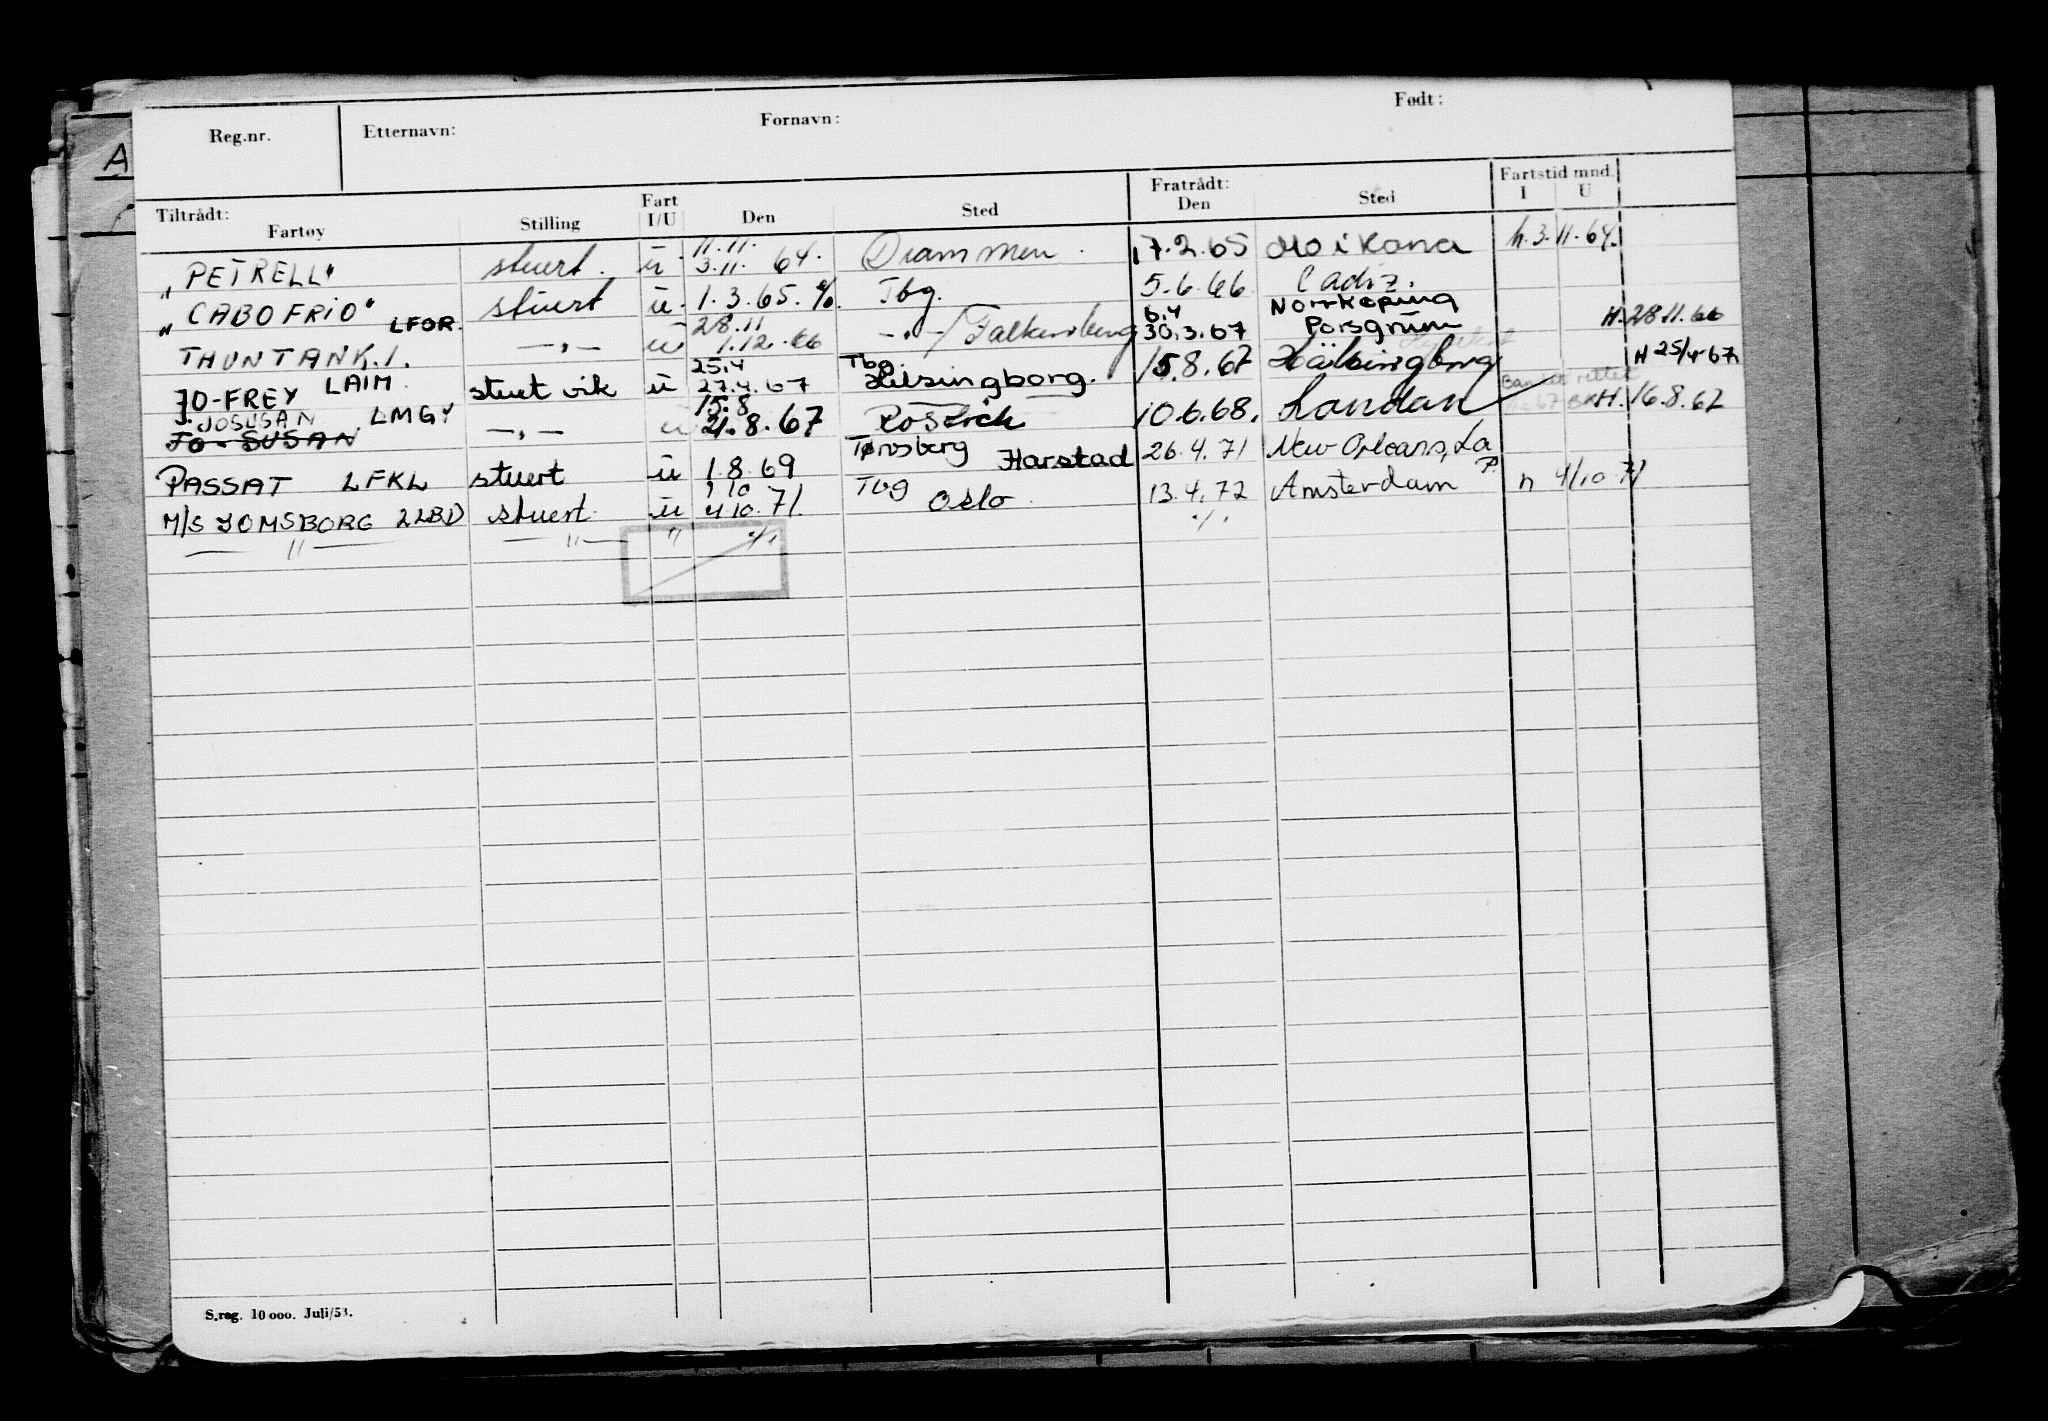 Reg.nr. Etternavn: Fornavn: Født:
A
Tiltrådt: Fratrådt: Fartstid mnd.
Fartøy Stilling Fart I/U Den Sted Den Sted I U
11.11.
"PETRELL" stuert. u 3.11. 64. Drammen. 17.2.65 Mo i Rana h. 3.11.64.
"CABOFRIO" stuert u. 1.3.65. %. Tbg. 5.6.66 Cadiz.
LFOR. 28.11 6.4 Norrköping
THUNTANK.1. —"— u 1.12.66 —"— / Falkenberg 30.3.67 Porsgrunn H. 28.11.66
25.4 Tbg.
JO-FREY LAIM. stuert vik u 27.4.67 Helsingborg. 15.8.67 Hälsingborg H 25/4-67
J. JOSUSAN LMGY 15.8
JO-SUSAN —"— u 21.8.67 Rostock 10.6.68. London H. 16.8.67
PASSAT LFKL stuert u 1.8.69 Tønsberg Harstad 26.4.71 New Orleans, La
1.10
M/S JOMSBORG LLBD stuert u 4.10.71. Tbg Oslo 13.4.72 Amsterdam n 4/10 71
—"— —"— " ./. ./.
S.reg. 10 000. Juli/53.